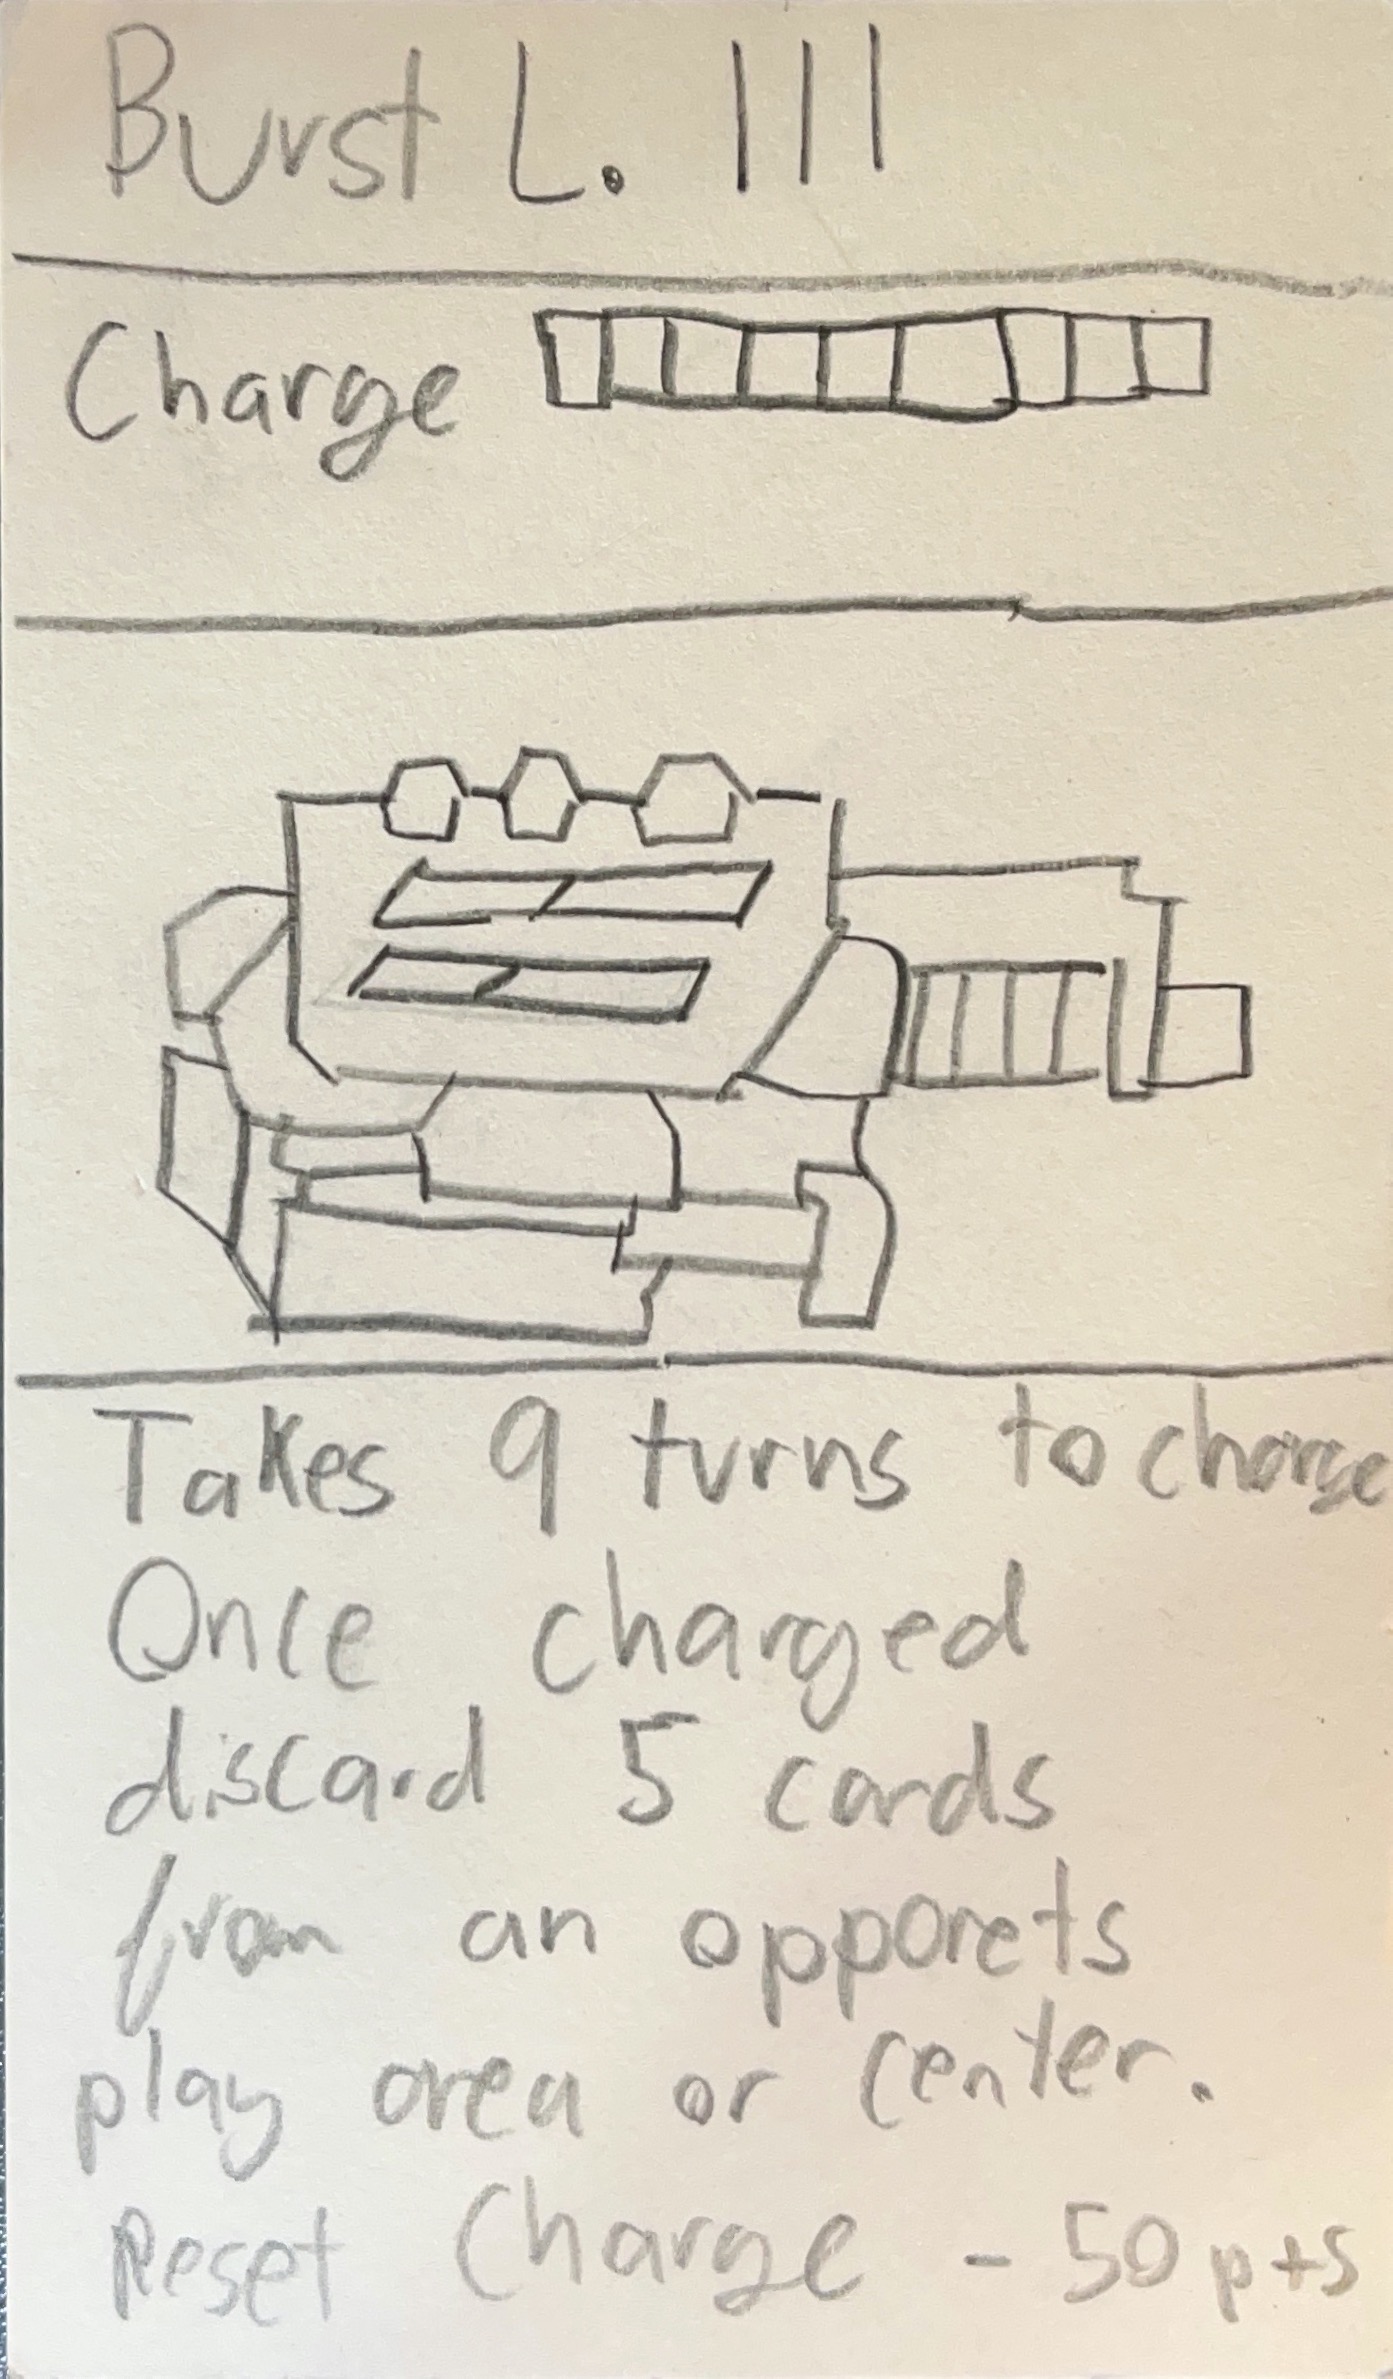 Burst L. III
Charge
Takes 9 turns to charge
Once charged
discard 5 cards
from an opponets
play area or center.
Reset Charge - 50 pts